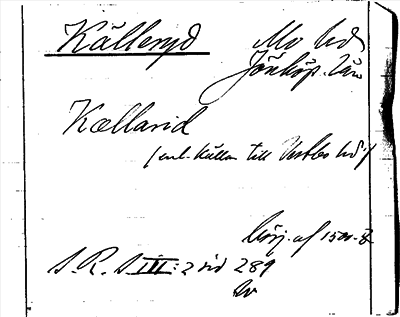 Källeryd Mo hd
Jönköp. län
Kællarid
(enl. källan till Vestbo hd)
Börj. af 1500-t
S. R. S III:2 sid 289